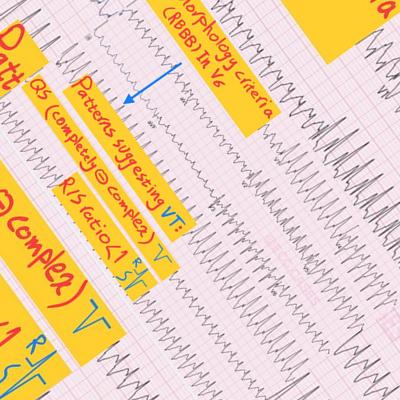 Morphology criteria
(RBBB) In V6
Patterns suggesting VT:
QS (completely ⊖ complex)
R/S ratio<1
R
S
Patt
⊖ complex)
<1
R
S